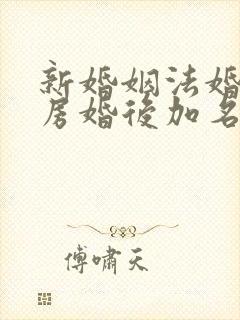 新婚姻法婚
房婚后加名
傅啸天